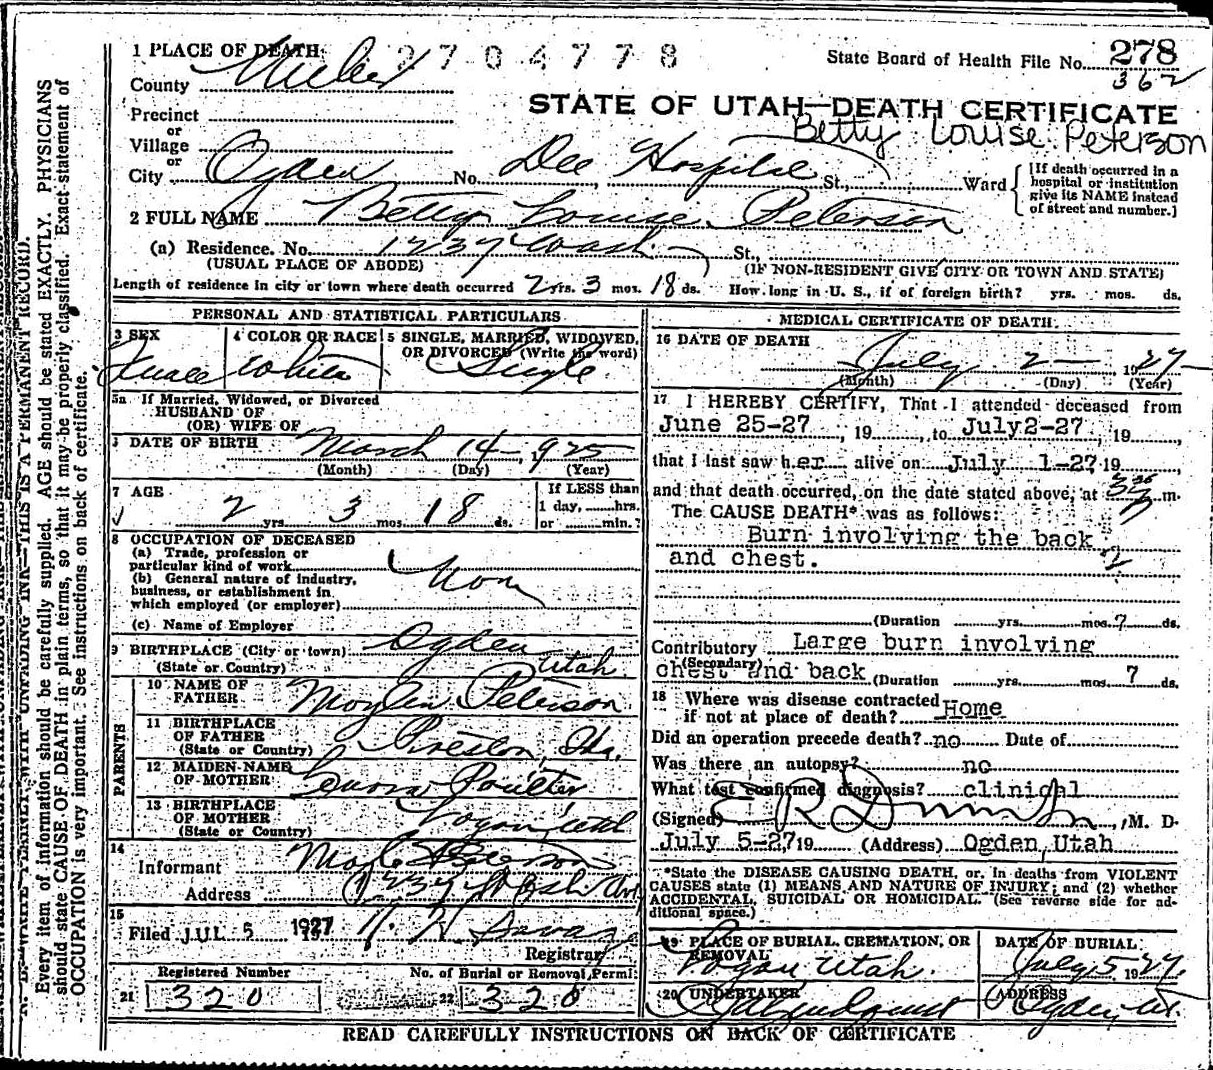 1 PLACE OF DEATH 2704778
State Board of Health File No. 278
362
County Weber
STATE OF UTAH—DEATH CERTIFICATE
Precinct
Betty Louise Peterson
or
Village
or
City Ogden No. Dee Hospital St., Ward
[If death occurred in a
hospital or institution
give its NAME instead
of street and number.]
2 FULL NAME Betty Louise Peterson
(a) Residence. No. 1237 Wash. St.,
(USUAL PLACE OF ABODE) (IF NON-RESIDENT GIVE CITY OR TOWN AND STATE)
Length of residence in city or town where death occurred 2 yrs. 3 mos. 18 ds. How long in U. S., if of foreign birth? yrs. mos. ds.
PERSONAL AND STATISTICAL PARTICULARS
3 SEX
Female
4 COLOR OR RACE
White
5 SINGLE, MARRIED, WIDOWED,
OR DIVORCED (Write the word)
Single
5a If Married, Widowed, or Divorced
HUSBAND OF
(OR) WIFE OF
DATE OF BIRTH March 14 1925
(Month) (Day) (Year)
7 AGE
2 yrs. 3 mos. 18 ds.
If LESS than
1 day, hrs.
or min.?
8 OCCUPATION OF DECEASED
(a) Trade, profession or
particular kind of work
(b) General nature of industry,
business, or establishment in
which employed (or employer)
(c) Name of Employer
9 BIRTHPLACE (City or town) Ogden
(State or Country) Utah
PARENTS
10 NAME OF
FATHER Peterson
11 BIRTHPLACE
OF FATHER
(State or Country) Preston, Ida.
12 MAIDEN NAME
OF MOTHER Poulter
13 BIRTHPLACE
OF MOTHER
(State or Country) Logan, Utah
14
Informant Peterson
Address 1237 Wash Ave
15
Filed JUL 5 1927
Registrar
Registered Number
21 320
No. of Burial or Removal Permit
22 320
MEDICAL CERTIFICATE OF DEATH
16 DATE OF DEATH
July 2 1927
(Month) (Day) (Year)
17 I HEREBY CERTIFY, That I attended deceased from
June 25-27, 19, to July 2-27, 19,
that I last saw her alive on July 1-27 19
and that death occurred, on the date stated above, at m.
The CAUSE DEATH* was as follows:
Burn involving the back
and chest.
(Duration yrs. mos. 7 ds.
Contributory Large burn involving
(Secondary) chest and back (Duration yrs. mos. 7 ds.
18 Where was disease contracted
if not at place of death? Home
Did an operation precede death? no Date of
Was there an autopsy? no
What test confirmed diagnosis? clinical
(Signed) , M. D.
July 5-27 19 (Address) Ogden, Utah
*State the DISEASE CAUSING DEATH, or, in deaths from VIOLENT
CAUSES state (1) MEANS AND NATURE OF INJURY; and (2) whether
ACCIDENTAL, SUICIDAL OR HOMICIDAL. (See reverse side for ad-
ditional space.)
19 PLACE OF BURIAL, CREMATION, OR
REMOVAL
Logan, Utah.
DATE OF BURIAL
July 5, 1927
20 UNDERTAKER
ADDRESS
Ogden, Ut.
READ CAREFULLY INSTRUCTIONS ON BACK OF CERTIFICATE
THIS IS A PERMANENT RECORD.
Every item of information should be carefully supplied. AGE should be stated EXACTLY. PHYSICIANS
should state CAUSE OF DEATH in plain terms, so that it may be properly classified. Exact statement of
OCCUPATION is very important. See instructions on back of certificate.